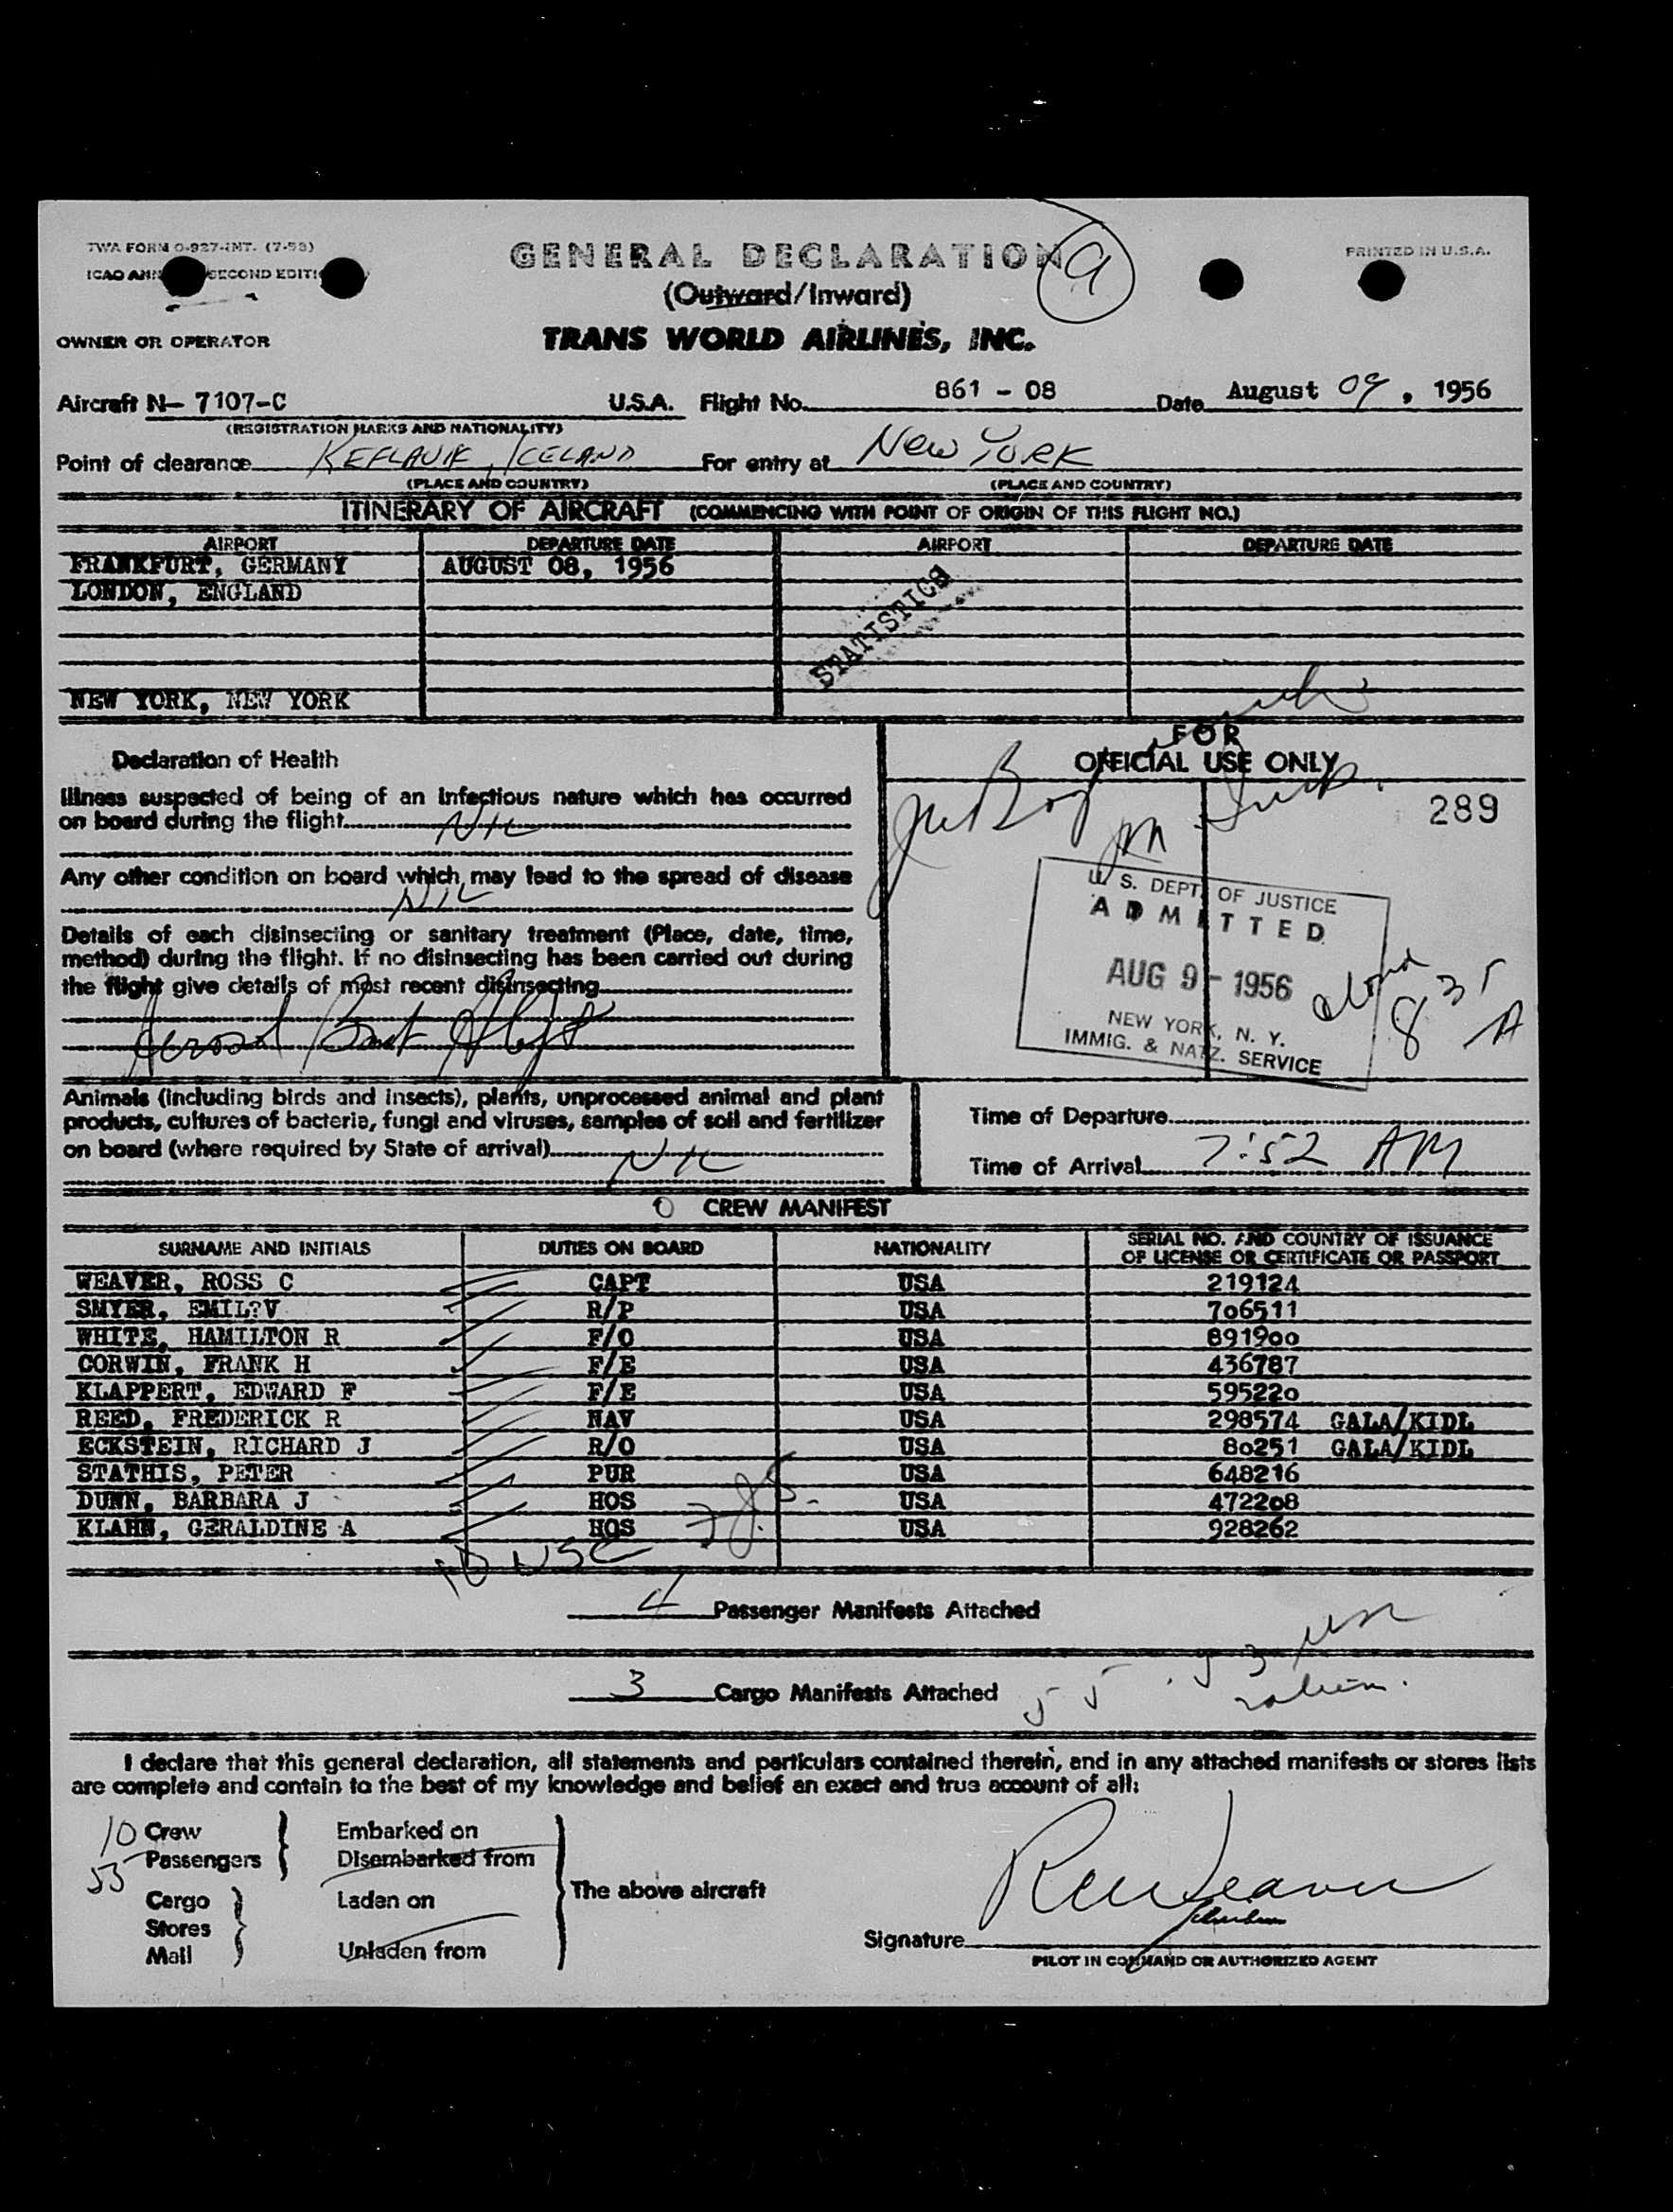 TWA FORM O-927-INT. (7-53)
GENERAL DECLARATION
9
PRINTED IN U.S.A.
ICAO SECOND
(Outward/Inward)
OWNER OR OPERATOR
TRANS WORLD AIRLINES, INC.
Aircraft N- 7107-C U.S.A. Flight No. 861 - 08 Date August 09, 1956
(REGISTRATION MARKS AND NATIONALITY)
Point of clearance KEFLAVIK, ICELAND For entry at New YORK
(PLACE AND COUNTRY) (PLACE AND COUNTRY)
ITINERARY OF AIRCRAFT (COMMENCING WITH POINT OF ORIGIN OF THIS FLIGHT NO.)
AIRPORT DEPARTURE DATE AIRPORT DEPARTURE DATE
FRANKFURT, GERMANY AUGUST 08, 1956
LONDON, ENGLAND
STATISTICS
NEW YORK, NEW YORK
FOR
OFFICIAL USE ONLY
289
Declaration of Health
Illness suspected of being of an infectious nature which has occurred
on board during the flight NIL
Any other condition on board which may lead to the spread of disease
NIL
Details of each disinsecting or sanitary treatment (Place, date, time,
method) during the flight. If no disinsecting has been carried out during
the flight give details of most recent disinsecting
Aerosol
U. S. DEPT. OF JUSTICE
ADMITTED
AUG 9 - 1956
NEW YORK, N. Y.
IMMIG. & NATZ. SERVICE
8 35 A
Animals (including birds and insects), plants, unprocessed animal and plant
products, cultures of bacteria, fungi and viruses, samples of soil and fertilizer
on board (where required by State of arrival) NIL
Time of Departure
Time of Arrival 7:52 AM
CREW MANIFEST
SURNAME AND INITIALS DUTIES ON BOARD NATIONALITY SERIAL NO. AND COUNTRY OF ISSUANCE
OF LICENSE OR CERTIFICATE OR PASSPORT
WEAVER, ROSS C CAPT USA 219124
SMYER, EMIL?V R/P USA 706511
WHITE, HAMILTON R F/O USA 891900
CORWIN, FRANK H F/E USA 436787
KLAPPERT, EDWARD F F/E USA 595220
REED, FREDERICK R NAV USA 298574 GALA/KIDL
ECKSTEIN, RICHARD J R/O USA 80251 GALA/KIDL
STATHIS, PETER PUR USA 648216
DUNN, BARBARA J HOS USA 472208
KLAHN, GERALDINE A HOS USA 928262
10 USC
4 Passenger Manifests Attached
3 Cargo Manifests Attached
I declare that this general declaration, all statements and particulars contained therein, and in any attached manifests or stores lists
are complete and contain to the best of my knowledge and belief an exact and true account of all:
10 Crew Embarked on
53 Passengers Disembarked from
The above aircraft
Cargo Laden on
Stores
Mail Unladen from
Signature RCWeaver
PILOT IN COMMAND OR AUTHORIZED AGENT